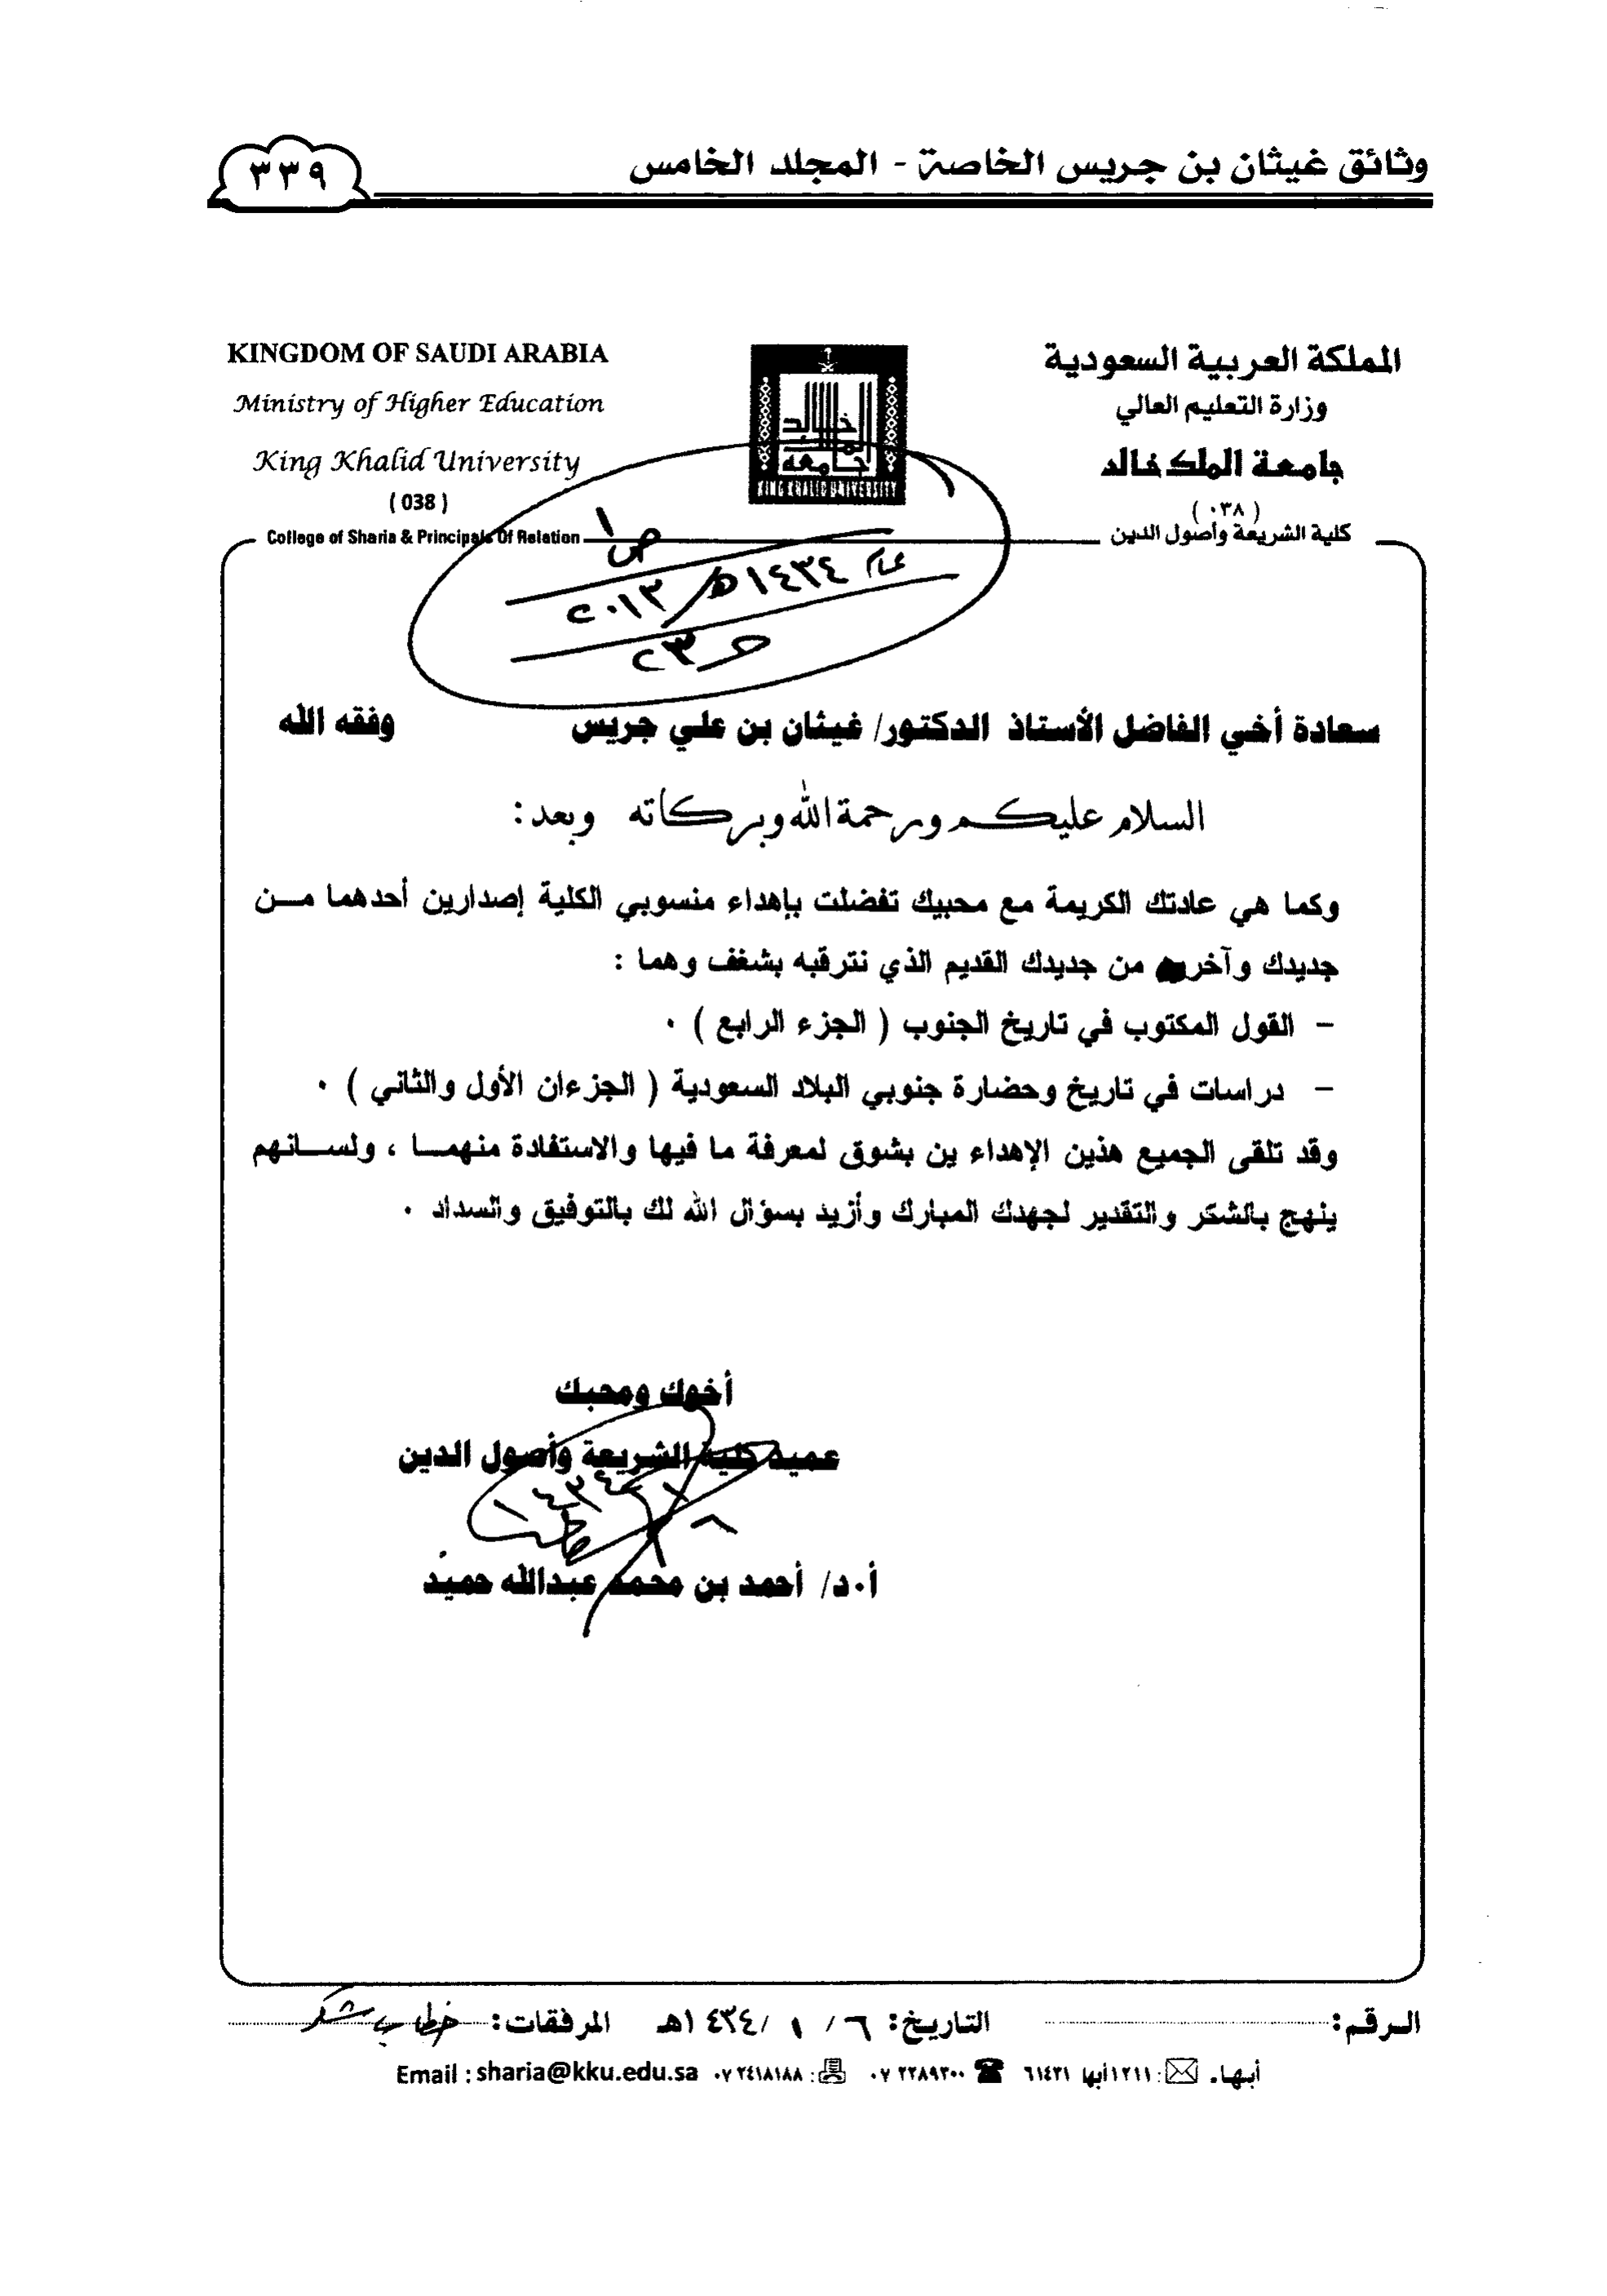 وثائق غيثان بن جريس الخاصة - المجلد الخامس
٣٣٩
المملكة العربية السعودية
وزارة التعليم العالي
جامعة الملك خالد
(٠٣٨)
كلية الشريعة وأصول الدين
KINGDOM OF SAUDI ARABIA
Ministry of Higher Education
King Khalid University
(038)
College of Sharia & Principals Of Relation
خالد
جامعة
KING KHALID UNIVERSITY
ص١
عام ١٤٣٤هـ/٢٠١٣
سعادة أخي الفاضل الأستاذ الدكتور/ غيثان بن علي جريس وفقه الله
السلام عليكم ورحمة الله وبركاته وبعد:
وكما هي عادتك الكريمة مع محبيك تفضلت بإهداء منسوبي الكلية إصدارين أحدهما من
جديدك وآخر من جديدك القديم الذي نترقبه بشغف وهما :
- القول المكتوب في تاريخ الجنوب ( الجزء الرابع ) .
- دراسات في تاريخ وحضارة جنوبي البلاد السعودية ( الجزءان الأول والثاني ) .
وقد تلقى الجميع هذين الإهداء ين بشوق لمعرفة ما فيها والاستفادة منهما ، ولسانهم
ينهج بالشكر والتقدير لجهدك المبارك وأزيد بسؤال الله لك بالتوفيق والسداد .
أخوك ومحبك
عميد كلية الشريعة وأصول الدين
١٤٣٤
أ.د/ أحمد بن محمد عبدالله حميد
الرقم: التاريخ: ٦ / ١ /١٤٣٤هـ المرفقات: خطاب شكر
أبها. : ١٢١١أبها ٦١٤٣١ ٠٧ ٢٢٨٩٣٠٠ : ٠٧ ٢٤١٨١٨٨ Email : sharia@kku.edu.sa